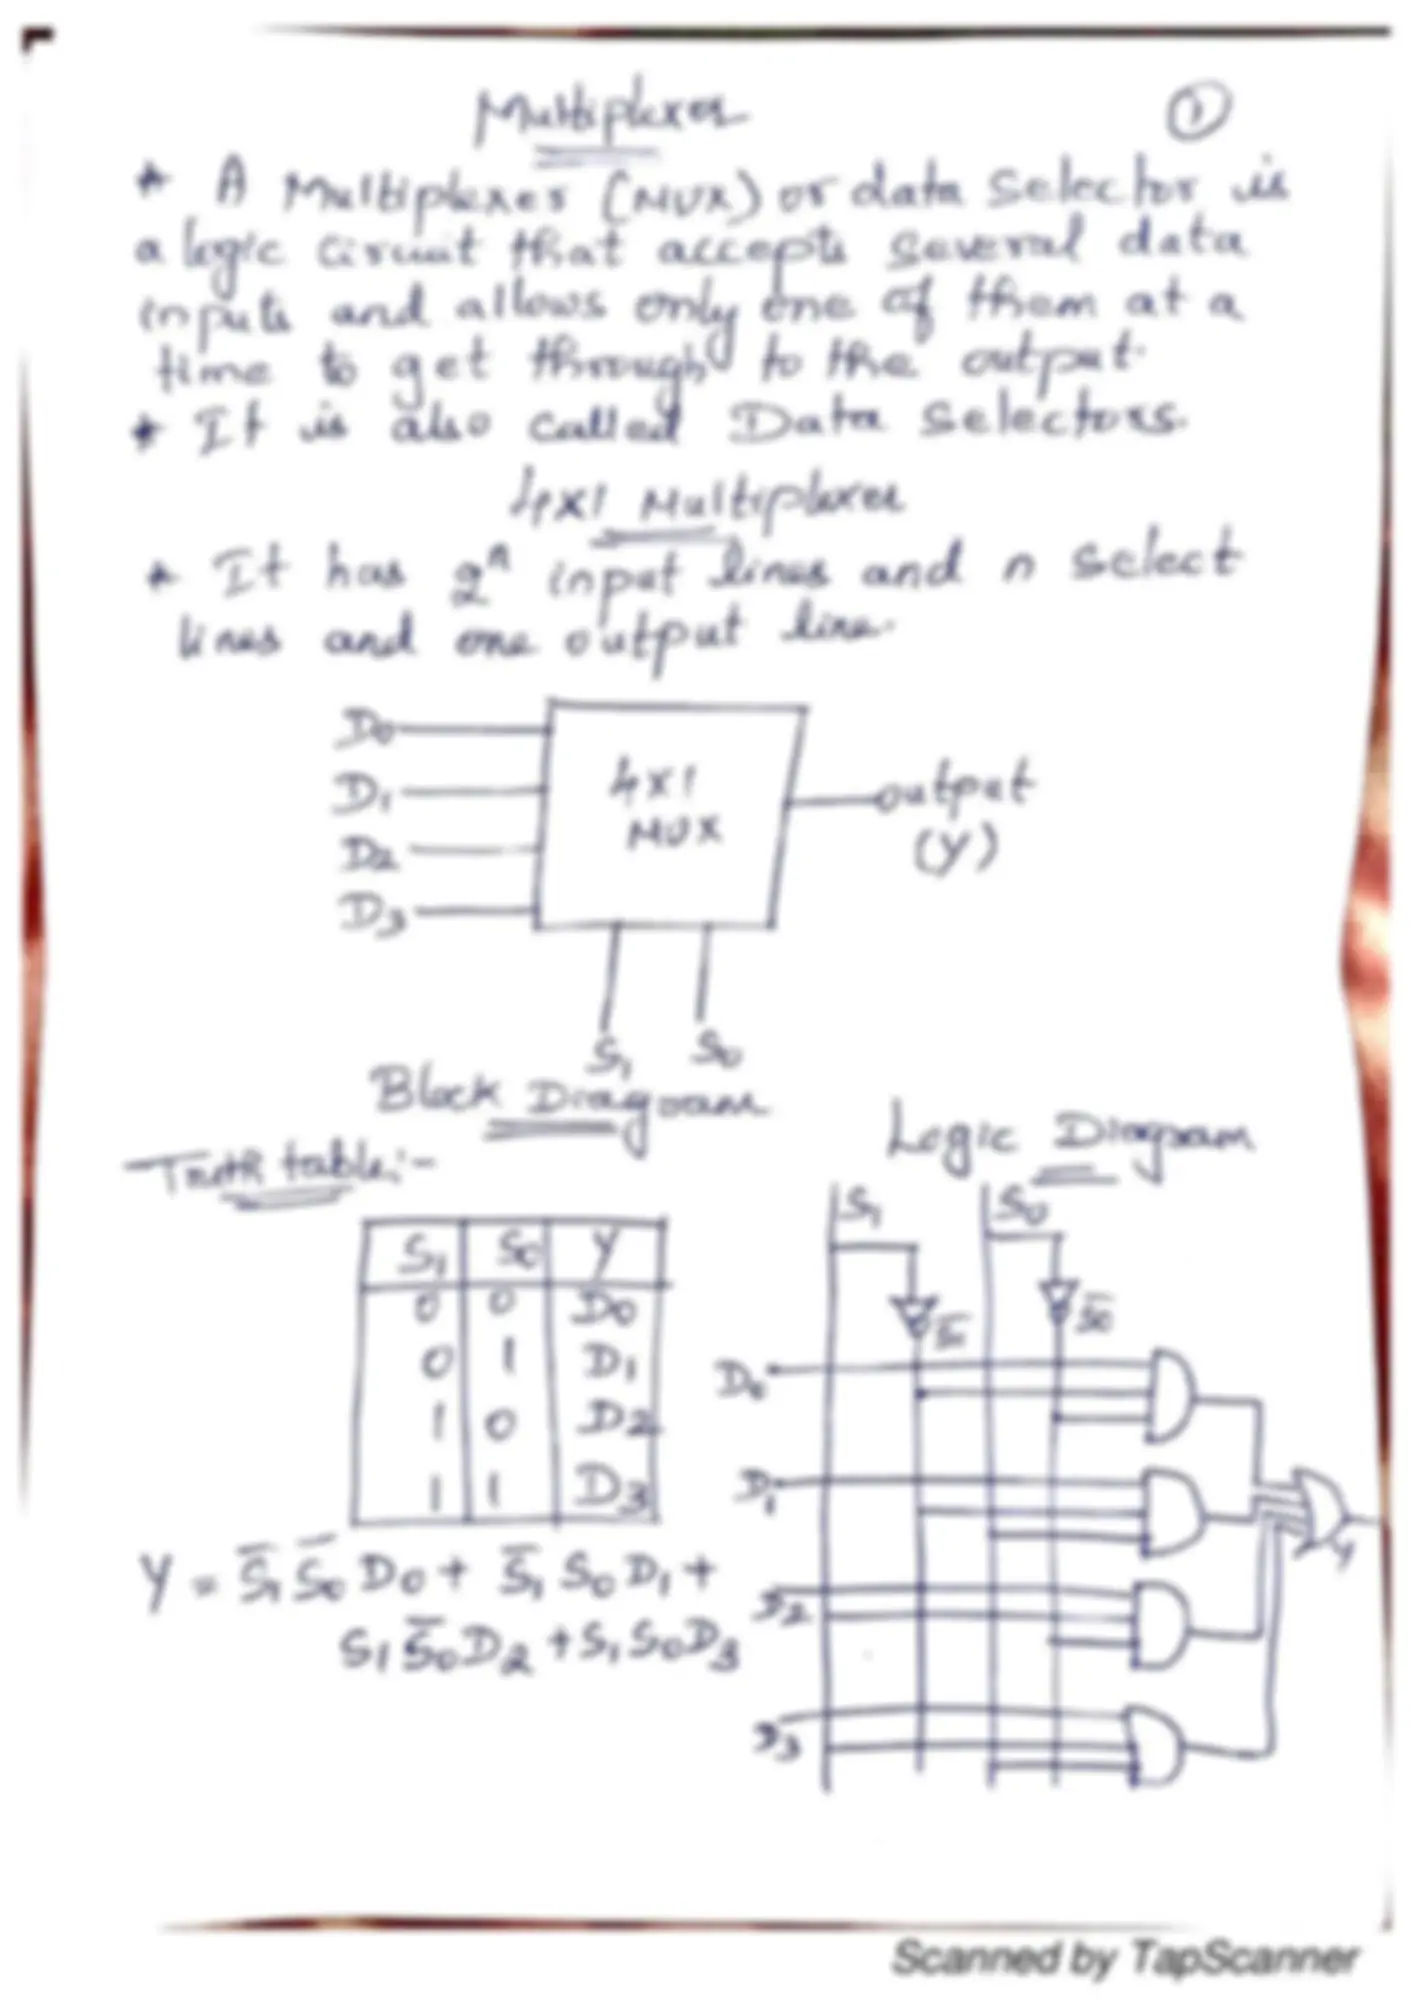 Multiplexer
①
* A Multiplexer (MUX) or data Selector is
a logic circuit that accepts several data
inputs and allows only one of them at a
time to get through to the output.
* It is also called Data Selectors.
4x1 Multiplexer
* It has 2ⁿ input lines and n select
lines and one output line.
D0
D1
D2
D3
4x1
MUX
output
(Y)
S1 S0
Block Diagram
Truth table:-
S1 S0 Y
0 0 D0
0 1 D1
1 0 D2
1 1 D3
Y = S̅1 S̅0 D0 + S̅1 S0 D1 +
S1 S̅0 D2 + S1 S0 D3
Logic Diagram
S1 S0
S̅1 S̅0
D0
D1
D2
D3
Y
Scanned by TapScanner